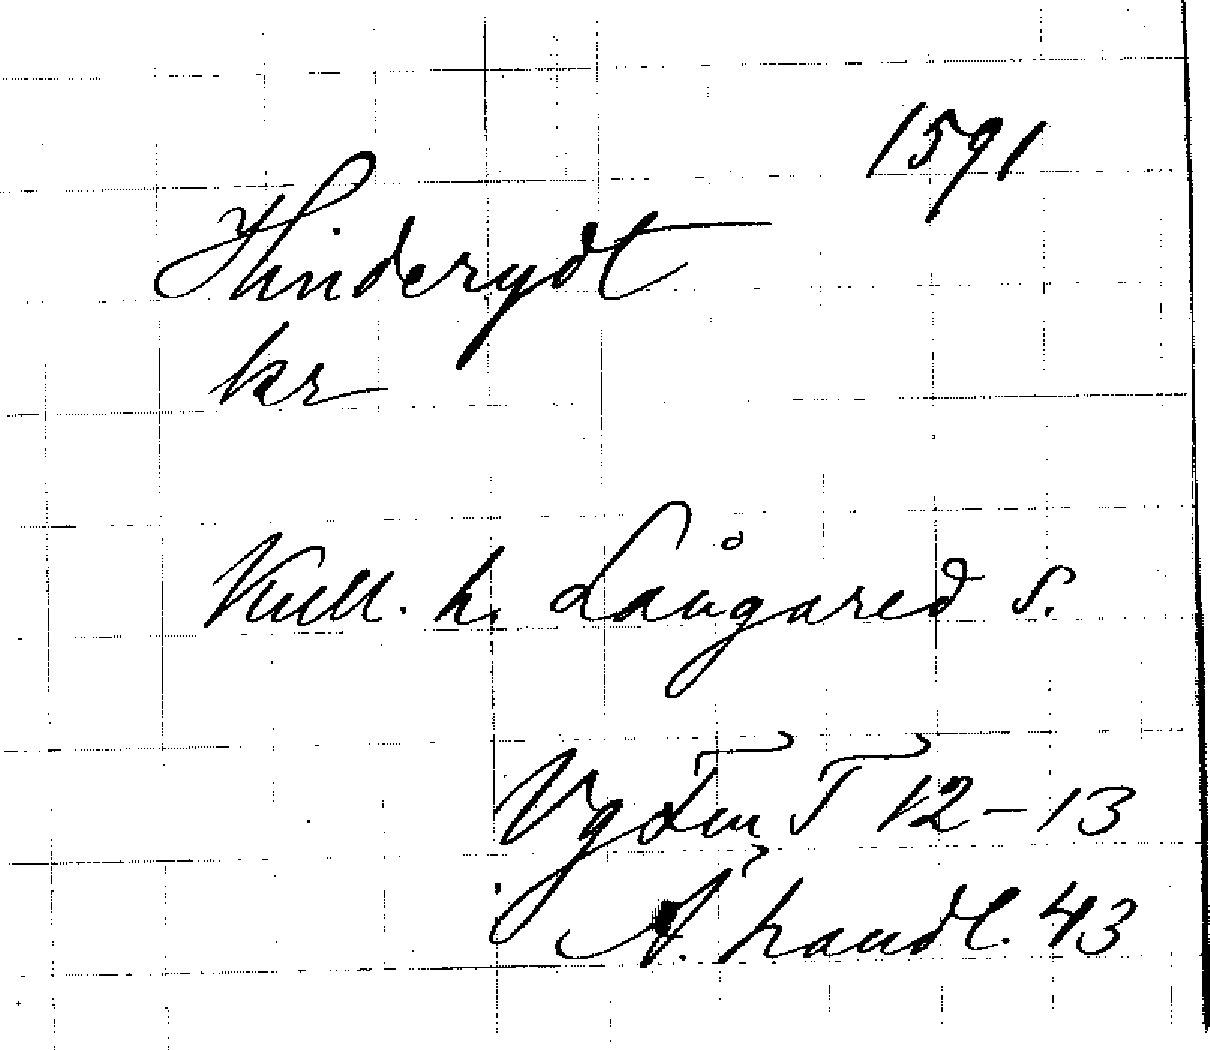 1591
Hinderydt
kr
Kull. h. Långared s.
Vg T 12-13
Ä. handl. 43